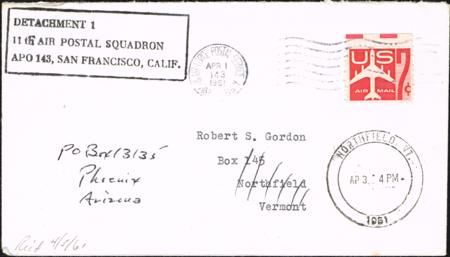 DETACHMENT 1
11th AIR POSTAL SQUADRON
APO 143, SAN FRANCISCO, CALIF.
APR 1
143
1961
US
AIR MAIL
7¢
Robert S. Gordon
Box 145
Northfield
Vermont
PO Box 13135
Phoenix
Arizona
NORTHFIELD, VT.
AP 3, 4 PM
1961
Rec'd 4/5/61